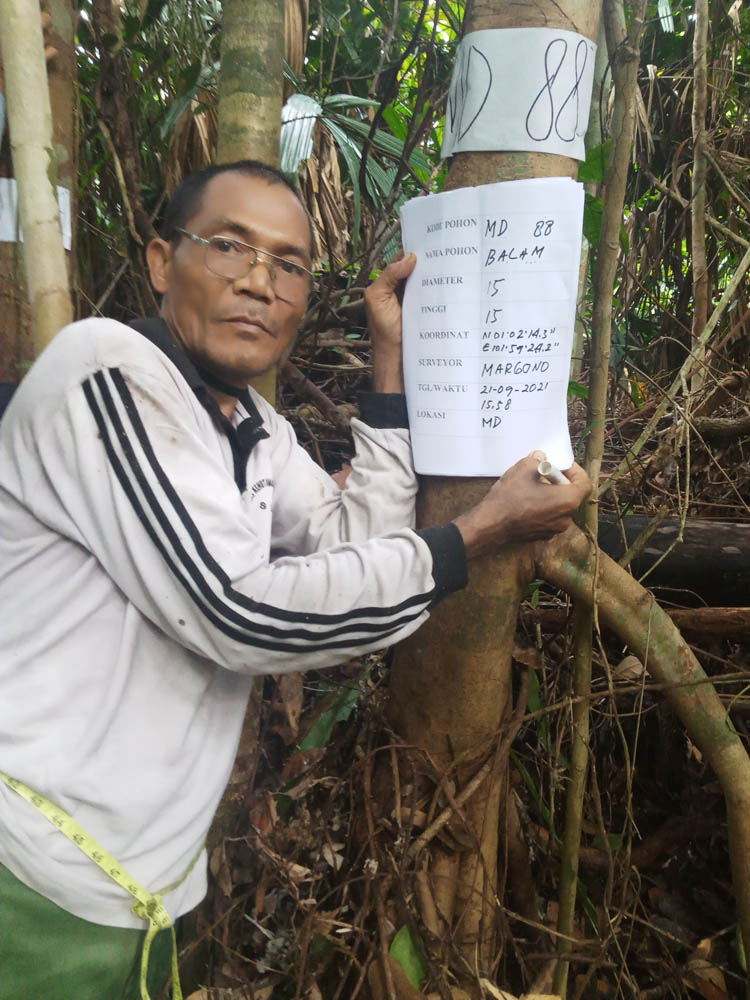 MD 88
KODE POHON MD 88
NAMA POHON BALAM
DIAMETER 15
TINGGI 15
KOORDINAT N01°02'14.3"
E101°59'24.2"
SURVEYOR MARGONO
TGL/WAKTU 21-09-2021
15.58
LOKASI MD